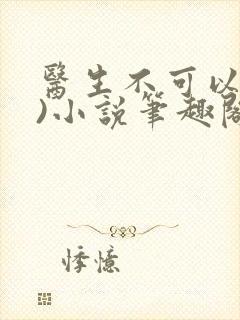 醫生不可以
)小說筆趣閣
悸憶